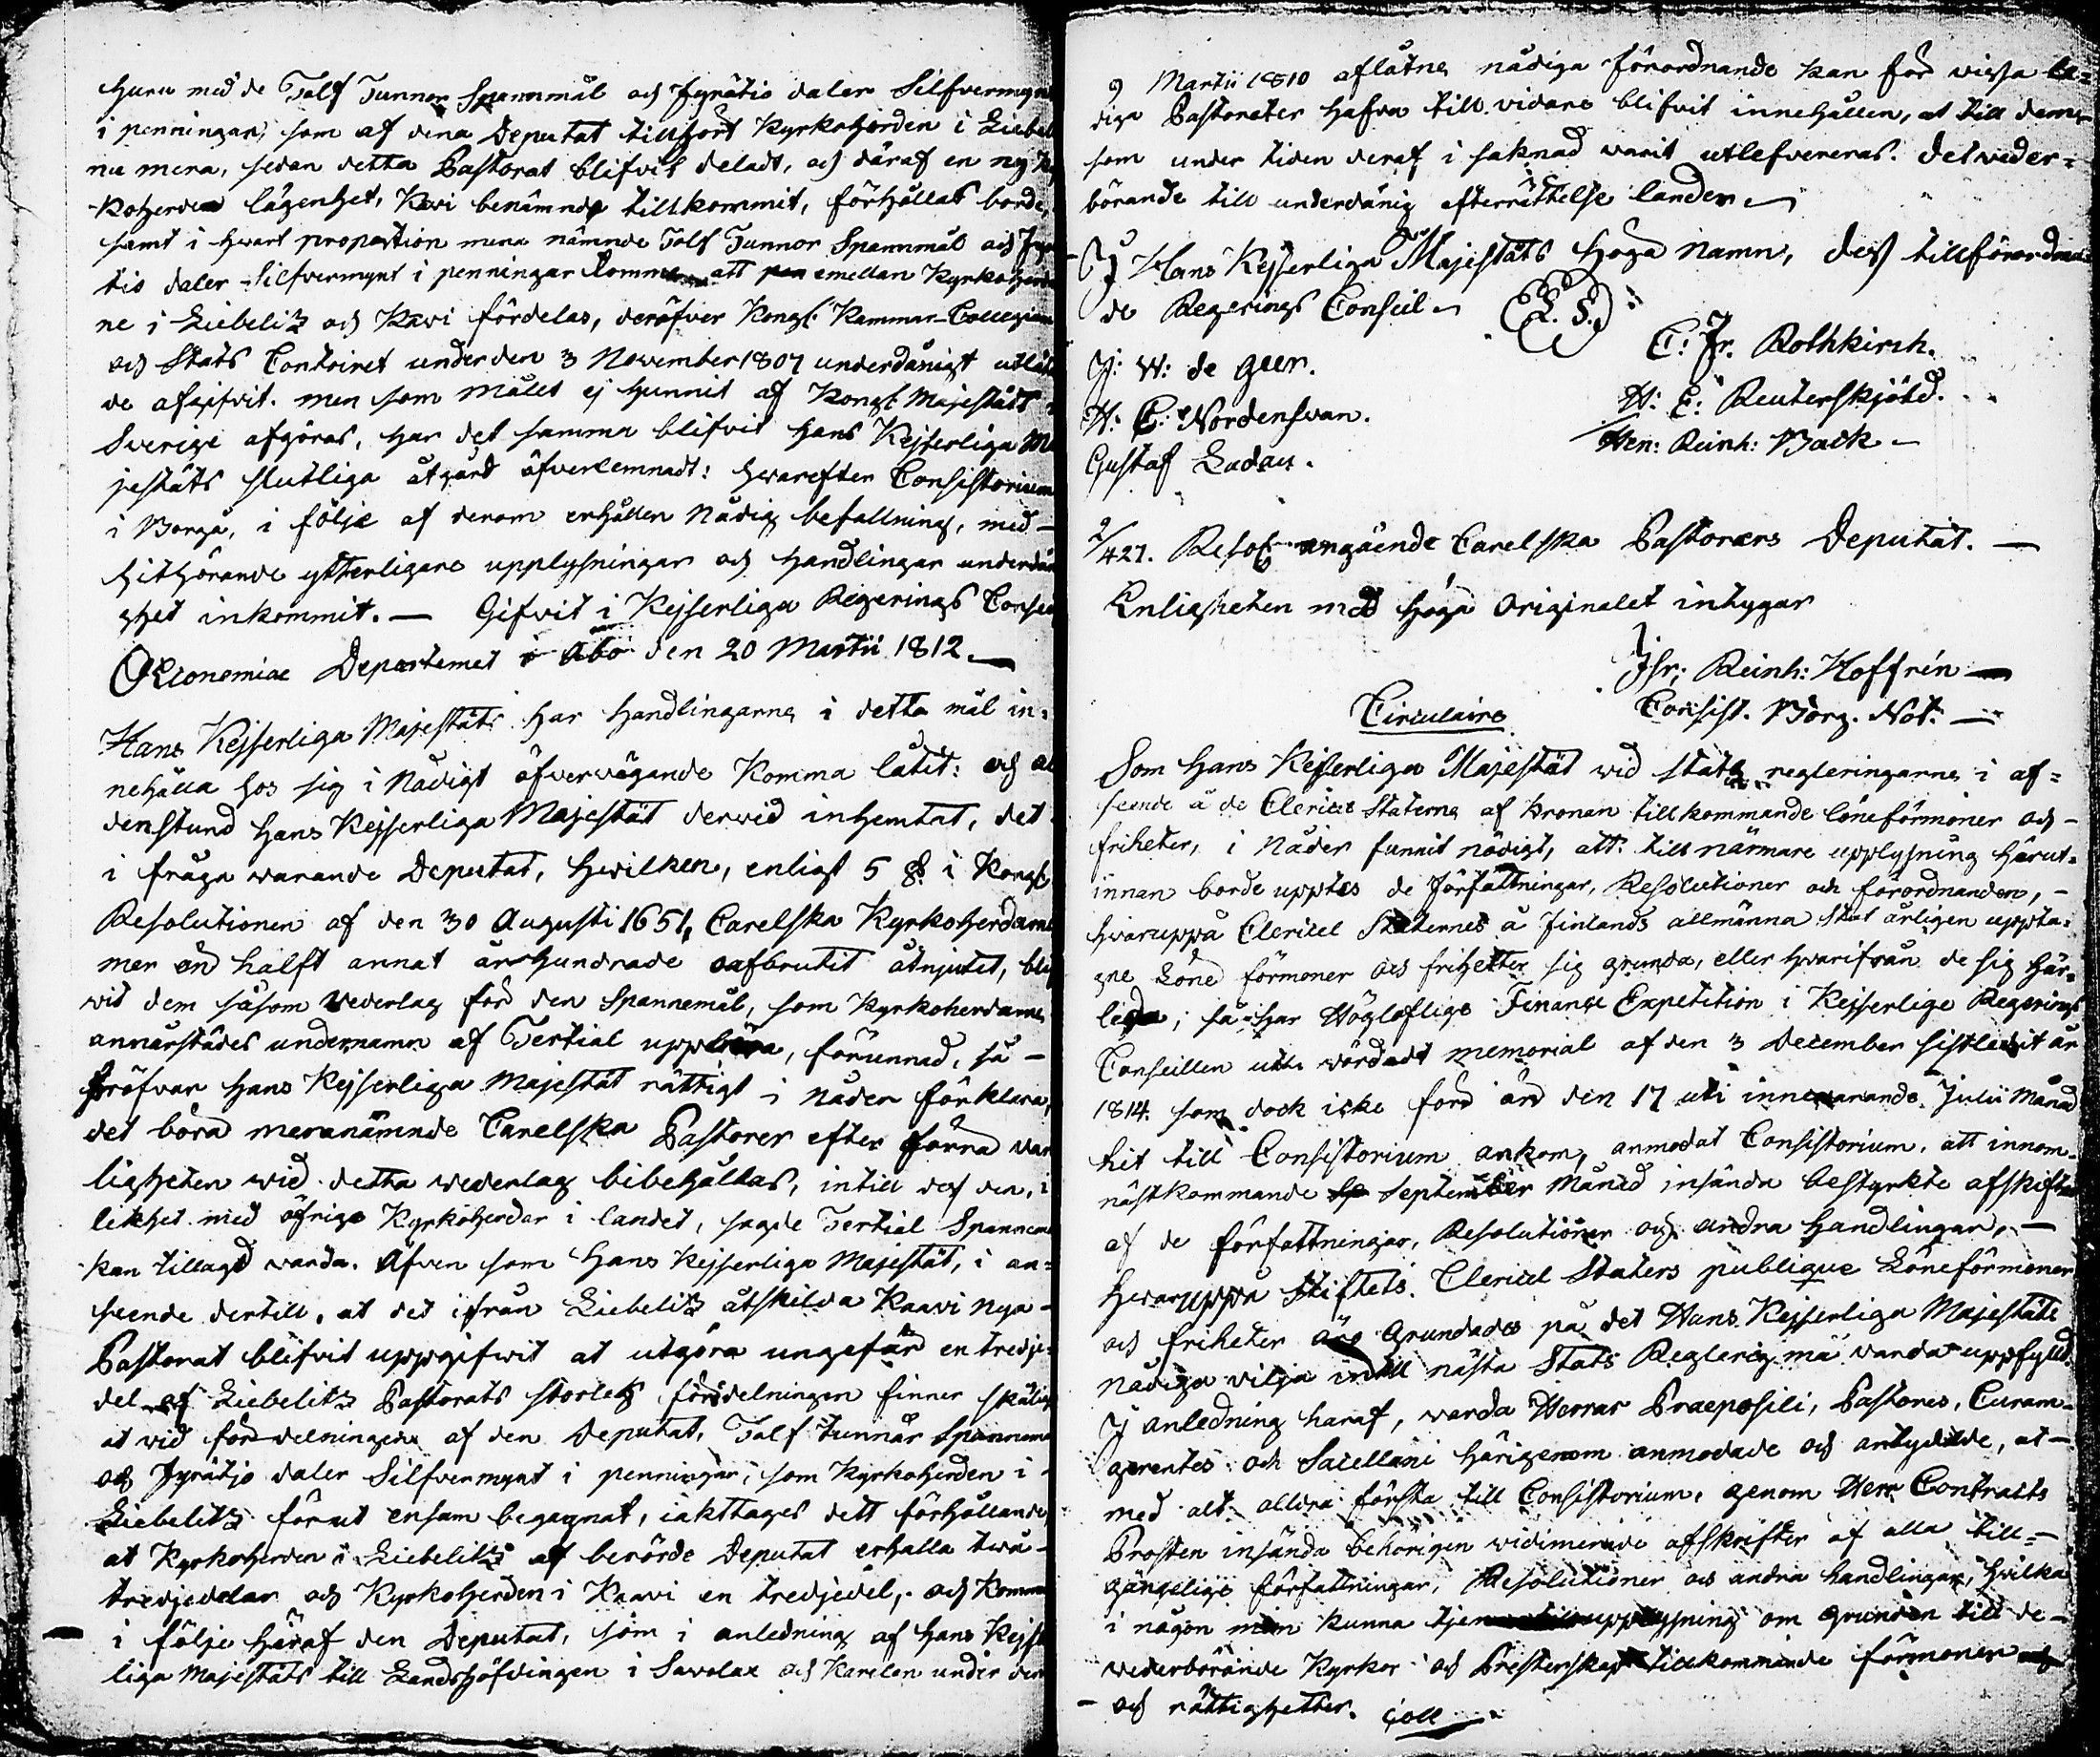 huru med de Tolf Tunnor Spannmål och fyratio daler Silfvermynt
i penningar, som af dena Deputat tillhört Kyrkoherden i Liebel
nu mera, sedan detta Pastorat blifvit deladt, och däraf en ny K
koherde lägenhet, Kavi benämnde tillkommit, förhållas borde,
samt i hwart proportion mera nämnde Tolf Tunnor Spannmål och Fyr
tio daler Silfvermynt i penningar komma att emellan Kyrkoherd
ne i Liebelitz och Kavi fördelas, deröfver Kongl. Kammar-Collegium
och Stats Contoiret under den 3 November 1807 underdånigt utlåt
de afgifvit. men som målet ej hunnit af Kongl Majestät i
Sverige afgöras, har det samma blifvit Hans Kejserliga Ma
jestäts slutliga åtgärd öfverlemnadt: hwarefter Consistorium
i Borgå, i följe af derom erhållen Nådig befallning, med-
hithörande ytterligare upplysningar och handlingar underdå
ghet inkommit. — Gifvit i Kejserliga Regerings Conse
Oeconomiae Departemet i Åbo den 20 Martii 1812. —
Hans Kejserliga Majestäts har handlingarne i detta mål in=
nehålla hos sig i Nådigt öfvervägande Komma låtit: och al
denstund Hans Kejserliga Majestät dervid inhemtat, det
i fråga warande Deputat, hwilken, enligt 5 §. i Kongl.
Resolutionen af den 30 Augusti 1651, Carelska Kyrkoherdarne
mer än halft annat århundrade oafbrutit åtnjutit, blif
vit dem såsom Vederlag för den Spannemål, som Kyrkoherdarne
annarstädes undernamn af Tertial uppbära, förunnad, så-
pröfvar Hans Kejserliga Majestät rättigt i nåder förklara,
det böra meranämnde Carelska Pastorer efter förra van
ligheten wid detta wederlag bibehållas, intill dess den, i
likhet med öfrige Kyrkoherdar i landet, sagde Tertial Spannem
kan tillagd warda. Äfven som Hans Kejserliga Majestät, i an=
seende dertill, at det ifrån Liebelitz åtskilda Kaavi nya-
Pastorat blifvit uppgifwit at utgöra ungefär en tredje-
del af Liebelitz Pastorats storlek fördelningen finner skälig
at vid fördelningen af den Deputat, Tolf tunnär Spannem
och Fyratjo daler Silfvermynt i penningar, som Kyrkoherden i-
Liebelitz förut ensam begagnat, iakttages dett förhållande,
at Kyrkoherden i Liebelitz af berörde Deputat erhalla twå-
tredjedelar och Kyrkoherden i Kaavi en tredjedel, och Komm
i följe häraf den Deputat, som i anledning af Hans Kejs
liga Majestäts till Landshöfdingen i Savolax och Karelen under den
9 Martii 1810 aflåtne nådiga förordnande kan för wissa le=
diga Pastorater hafva till vidare blifvit innehållen, at till dem
som under tiden deraf i saknad warit utlefvereras. det veder=
börande till underdånig efterrättelse länder
J Hans Kejserliga Majestäts Höga namn, dess tillförordna
de Regerings Conseil (L. S.)
C: Fr. Rothkirch.
J: W: de Geer.
H: E: Reuterskjöld.
H: C: Nordensvan.
Hen: Reinh: Back -
Gustaf Ladau.
2/427. Resol: angående Carelska Pastorers Deputat. —
Enligheten med Höga Originalet intygar
Jsr; Reinh: Hoffrén —
Consist. Borg. Not. —
Circulaire
Som Hans Kejserliga Majestät wid stats regleringarne i af=
seende å de Clericie Staterne af Kronan tillkommande löneförmoner och-
friheter, i Nåder funnit nödigt, att till närmare upplysning härut=
innan borde upptes de författningar, Resolutioner och förordnanden, -
hvaruppå Clericel Staternes å Finlands allmänna Stat årligen uppta=
gne Löne förmoner och frihetter sig grunda, eller hvarifrån de sig här=
leda; så har Höglofliga Finance Expetition i Kejserlige Regerings
Conseillen uti wördadt memorial af den 3 December sistledit år
1814. som dock icke för än den 17 uti innewarande Julii Månad
hit till Consistorium ankom, anmodat Consistorium, att innom-
nästkommande September Månad insända bestyrkte afskifter
af de författningar, Resolutioner och andra handlingar, —
hwaruppå Stiftets Clericel Staters publique Löneförmoner
och friheter äro grundade på det Hans Kejserliga Majestäts
nådiga vilja intill nästa Stats Reglerig må varda uppfylld
J anledning haraf, warda Herrar Praeposili, Pastores, Curam-
gerentes och Sacellani härigenom anmodade och antydde, at-
med alt aldra första till Consistorium, genom Herr Contracts
Prosten insända behörigen widimerade afskrifter af alla till-
gängelige författningar, Resolutioner och andra handlingar, hvilka
i någon mån kunna tjena till upplysning om grunden till de-
wederbörande Kyrkor och Presterskap tillkommande förmoner
- och rättighetter.